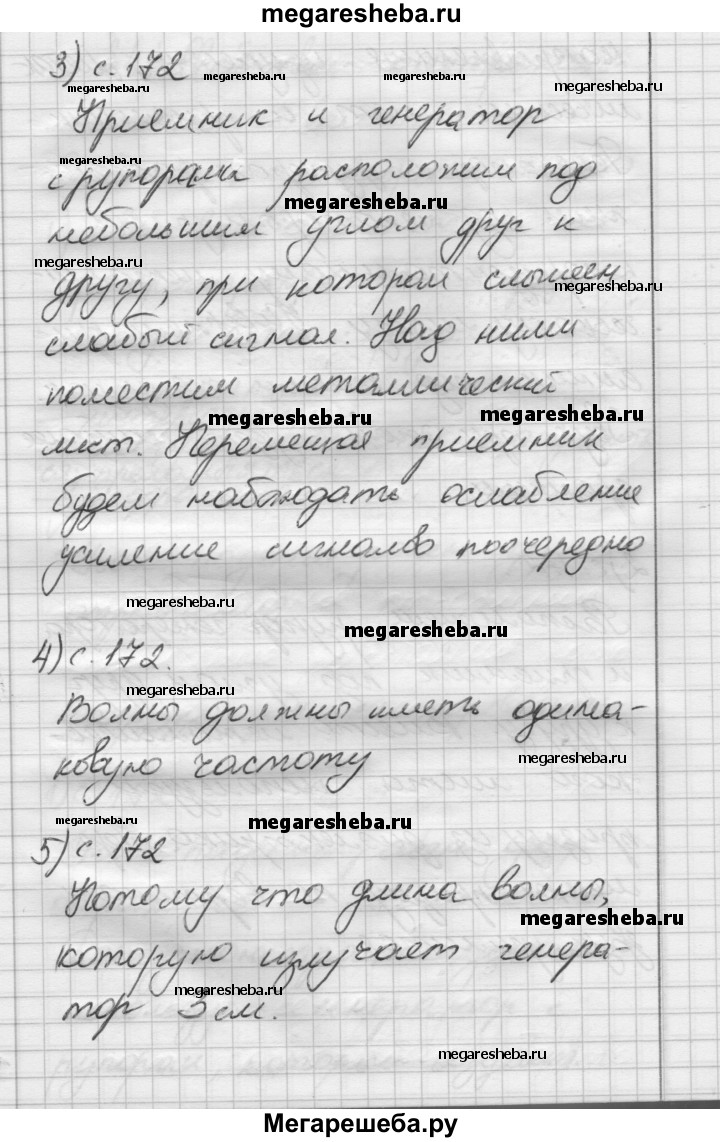 megaresheba.ru
3) с. 172
megaresheba.ru megaresheba.ru megaresheba.ru
megaresheba.ru
Приемник и генератор
megaresheba.ru
с рупорами расположим под
megaresheba.ru
небольшим углом друг к
megaresheba.ru
другу, при котором слышен
megaresheba.ru
слабый сигнал. Над ними
поместим металлический
megaresheba.ru megaresheba.ru
лист. Перемещая приемник
будем наблюдать ослабление
усиление сигналво поочередно
megaresheba.ru
megaresheba.ru
4) с. 172.
megaresheba.ru
Волны должны иметь одина-
ковую частоту
megaresheba.ru
megaresheba.ru megaresheba.ru
5) с. 172
Потому что длина волны,
megaresheba.ru
которую излучает генера-
megaresheba.ru
тор 3 см.
megaresheba.ru
Мегарешеба.ру